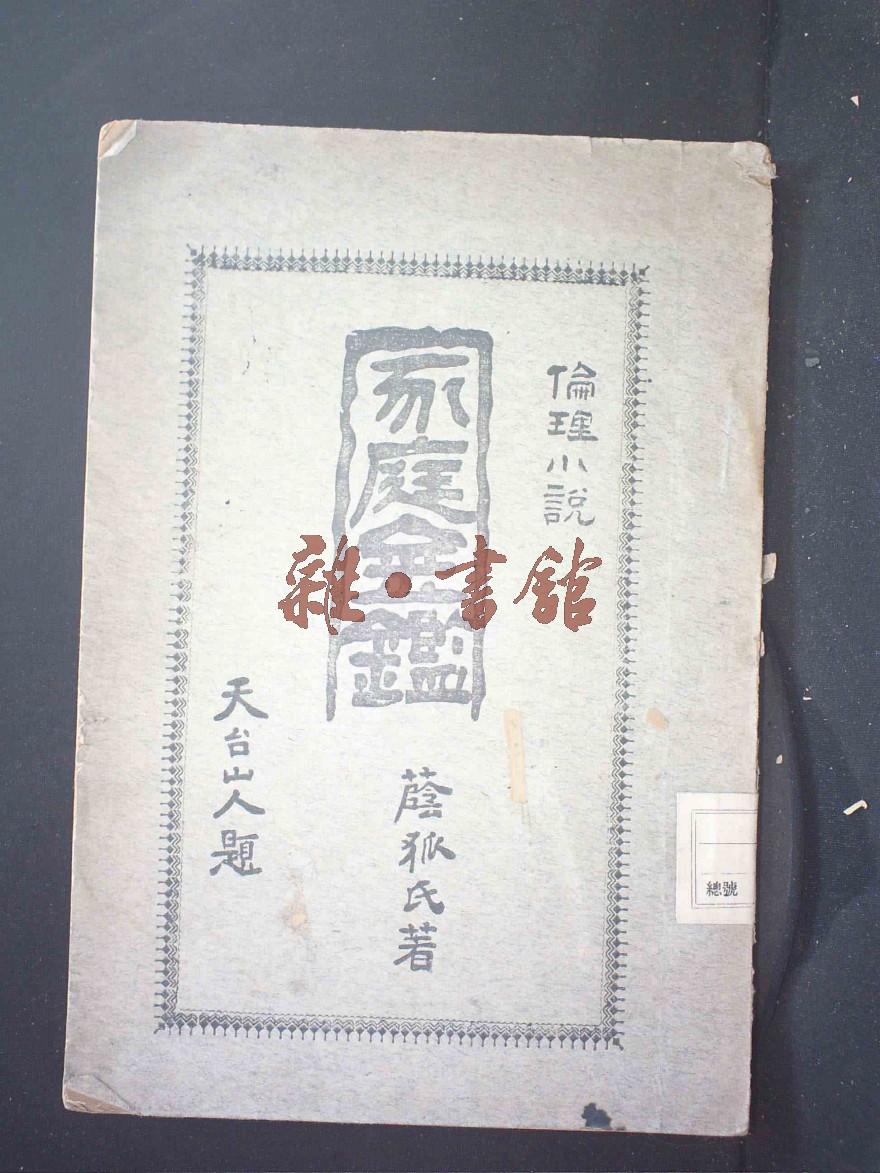 倫理小說
家庭金鑑
蔭狐氏著
天台山人題
雜·書館
總號